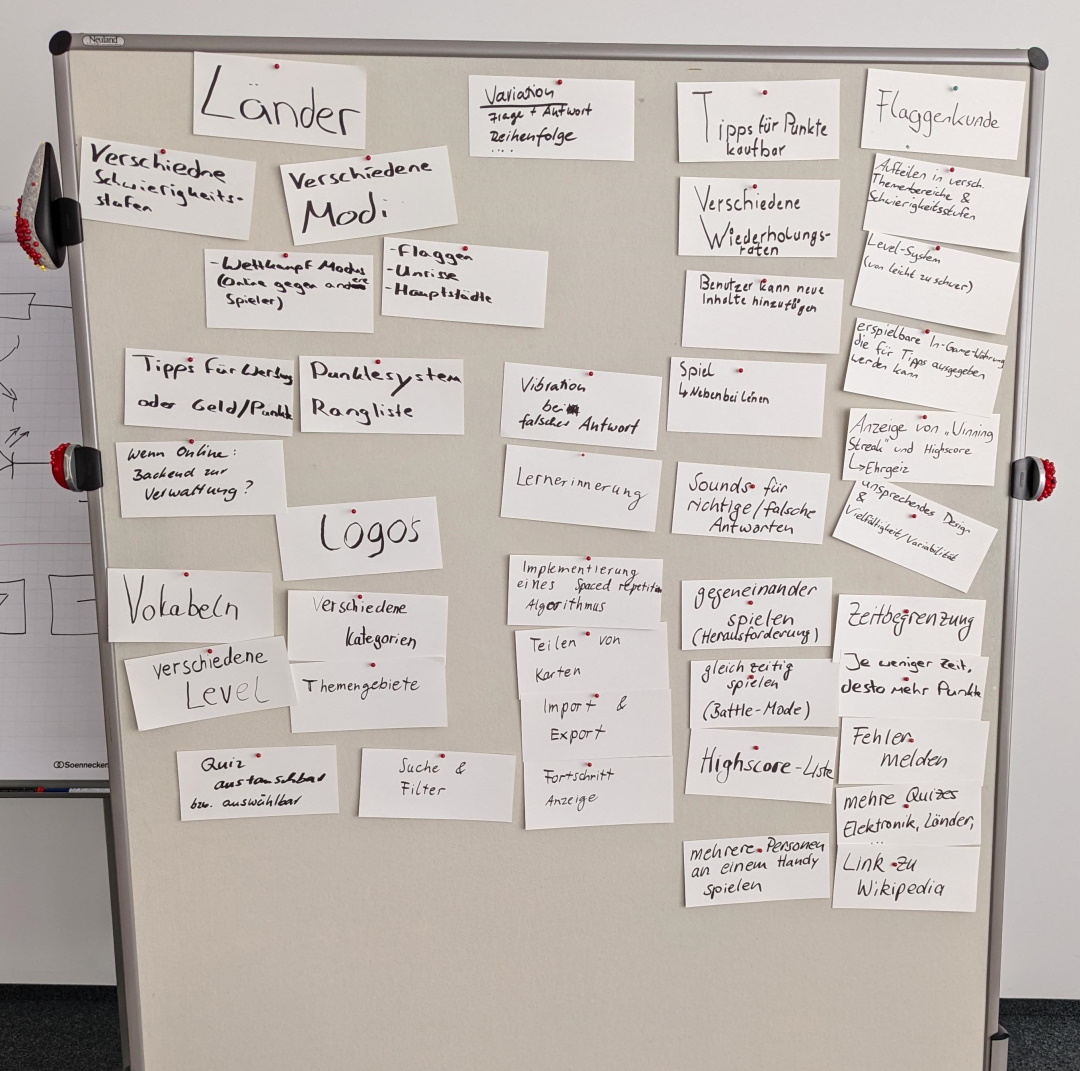 Neuland
Länder
Verschiedne
Schwierigkeits-
stufen
Verschiedene
Modi
- Wettkampf Modus
(Online gegen andere
Spieler)
- Flaggen
- Umrisse
- Hauptstädte
Tipps für Werbung
oder Geld/Punkte
Punktesystem
Rangliste
Wenn Online:
Backend zur
Verwaltung?
Logos
Vokabeln
verschiedene
Level
Verschiedene
Kategorien
Themengebiete
Quiz
austauschbar
bzw. auswählbar
Suche &
Filter
Variation
Frage + Antwort
Reihenfolge
....
Vibration
bei
falscher Antwort
Lernerinnerung
Implementierung
eines Spaced repetition
Algorithmus
Teilen von
Karten
Import &
Export
Fortschritt
Anzeige
Tipps für Punkte
kaufbar
Verschiedene
Wiederholungs-
raten
Benutzer kann neue
Inhalte hinzufügen
Spiel
↳ Nebenbei lernen
Sounds für
richtige/falsche
Antworten
gegeneinander
spielen
(Herausforderung)
gleichzeitig
spielen
(Battle-Mode)
Highscore-Liste
mehrere Personen
an einem Handy
spielen
Flaggenkunde
Aufteilen in versch.
Themenbereiche &
Schwierigkeitsstufen
Level-System
(von leicht zu schwer)
erspielbare In-Game-Währung
die für Tipps ausgegeben
werden kann
Anzeige von "Winning
Streak" und Highscore
↳ Ehrgeiz
ansprechendes Design
&
Vielfältigkeit/Variabilität
Zeitbegrenzung
Je weniger Zeit,
desto mehr Punkte
Fehler
melden
mehre Quizes
Elektronik, Länder,
...
Link zu
Wikipedia
Soennecken